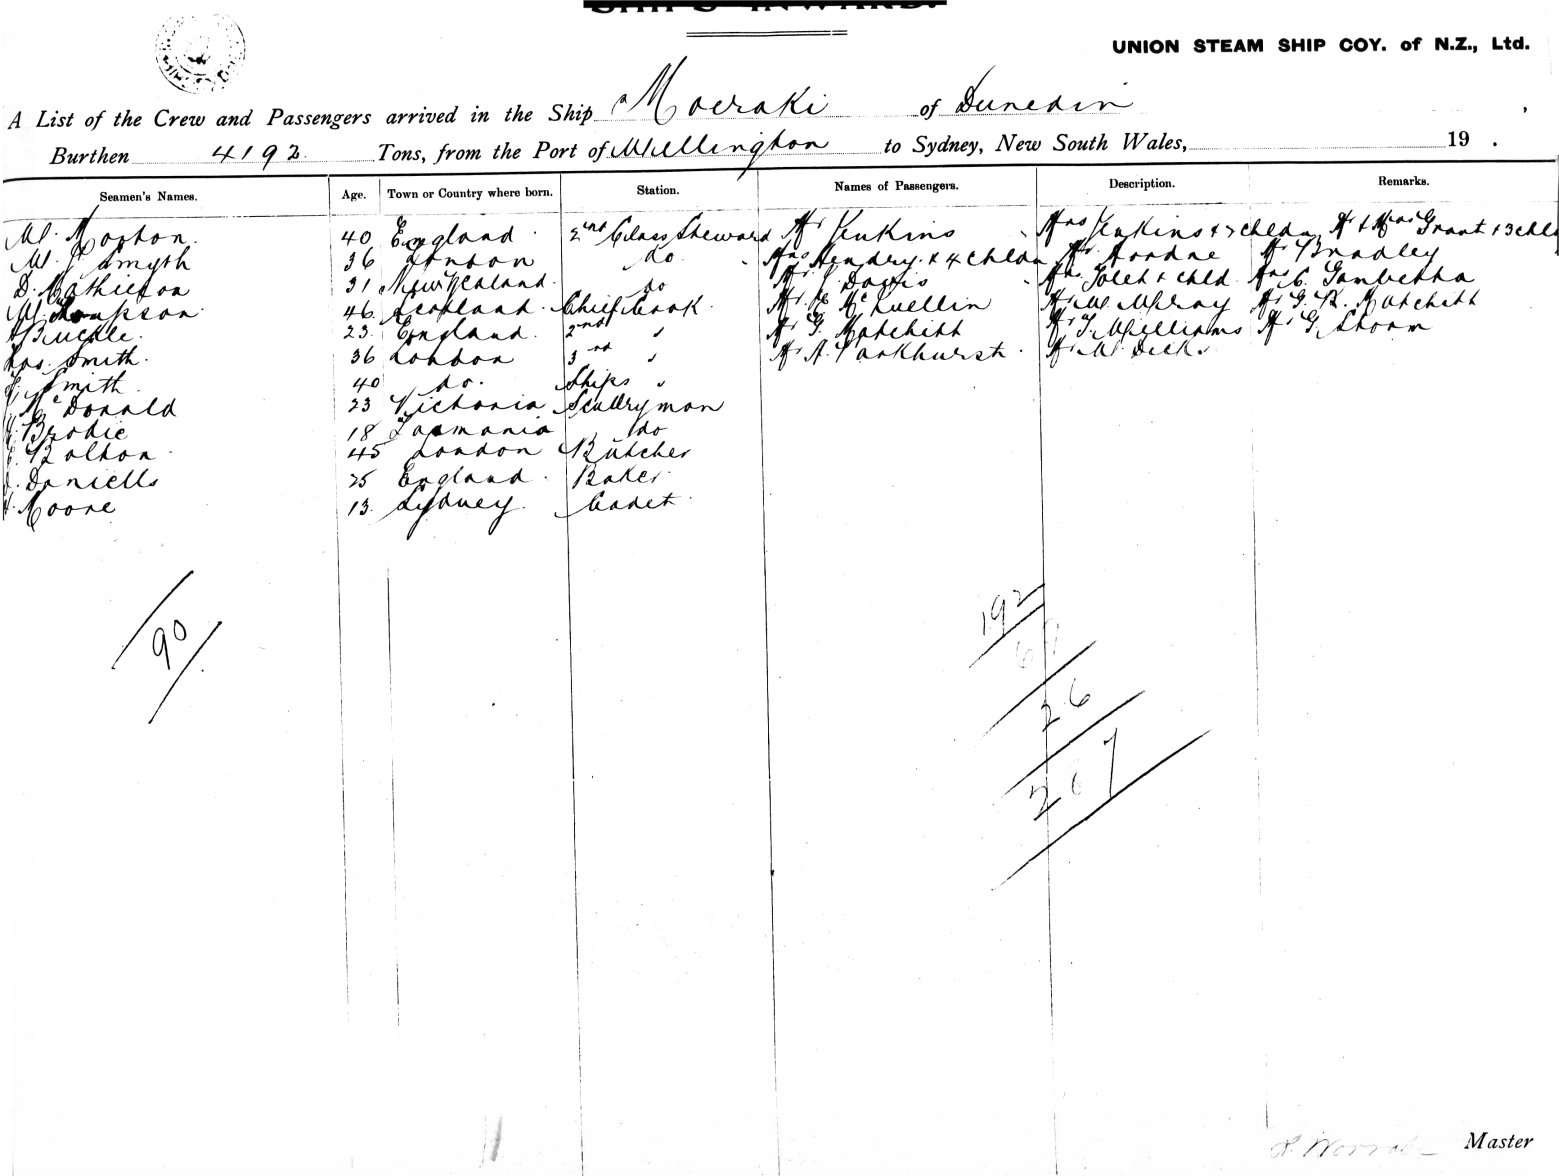 SHIPS INWARD.
UNION STEAM SHIP COY. of N.Z., Ltd.
A List of the Crew and Passengers arrived in the Ship Moeraki of Dunedin
Burthen 4192 Tons, from the Port of Wellington to Sydney, New South Wales, 19 .
Seamen's Names. Age. Town or Country where born. Station. Names of Passengers. Description. Remarks.
W. Morton. 40 England. 2nd Class Steward Mr Jenkins Mrs Jenkins + 7 chldn Mr + Mrs Grant + 3 chld
W. Smyth 36 London do Mrs Hendry + 4 chldn Mr Mr Bradley
D. Mathieson 31 New Zealand. do Mr J Davis Mrs + chld Mrs C. Gambetta
46 Scotland. Chief Cook Mr E McLuellin Mr W. Mr G. R. Matchitt
Buckle. 23. England. 2nd " Mr G. Matchitt Mr T. Williams Mr G Storm
Smith. 36 London 3rd " Mr A. Parkhurst. Mr W. Dick.
Smith. 40 do. Ships "
McDonald 23 Victoria Sculleryman
Brodie 18 Tasmania do
Bolton. 45 London Butcher
Daniells 25 England. Baker.
Moore 13. Sydney. Cadet.
90
192
26
Master